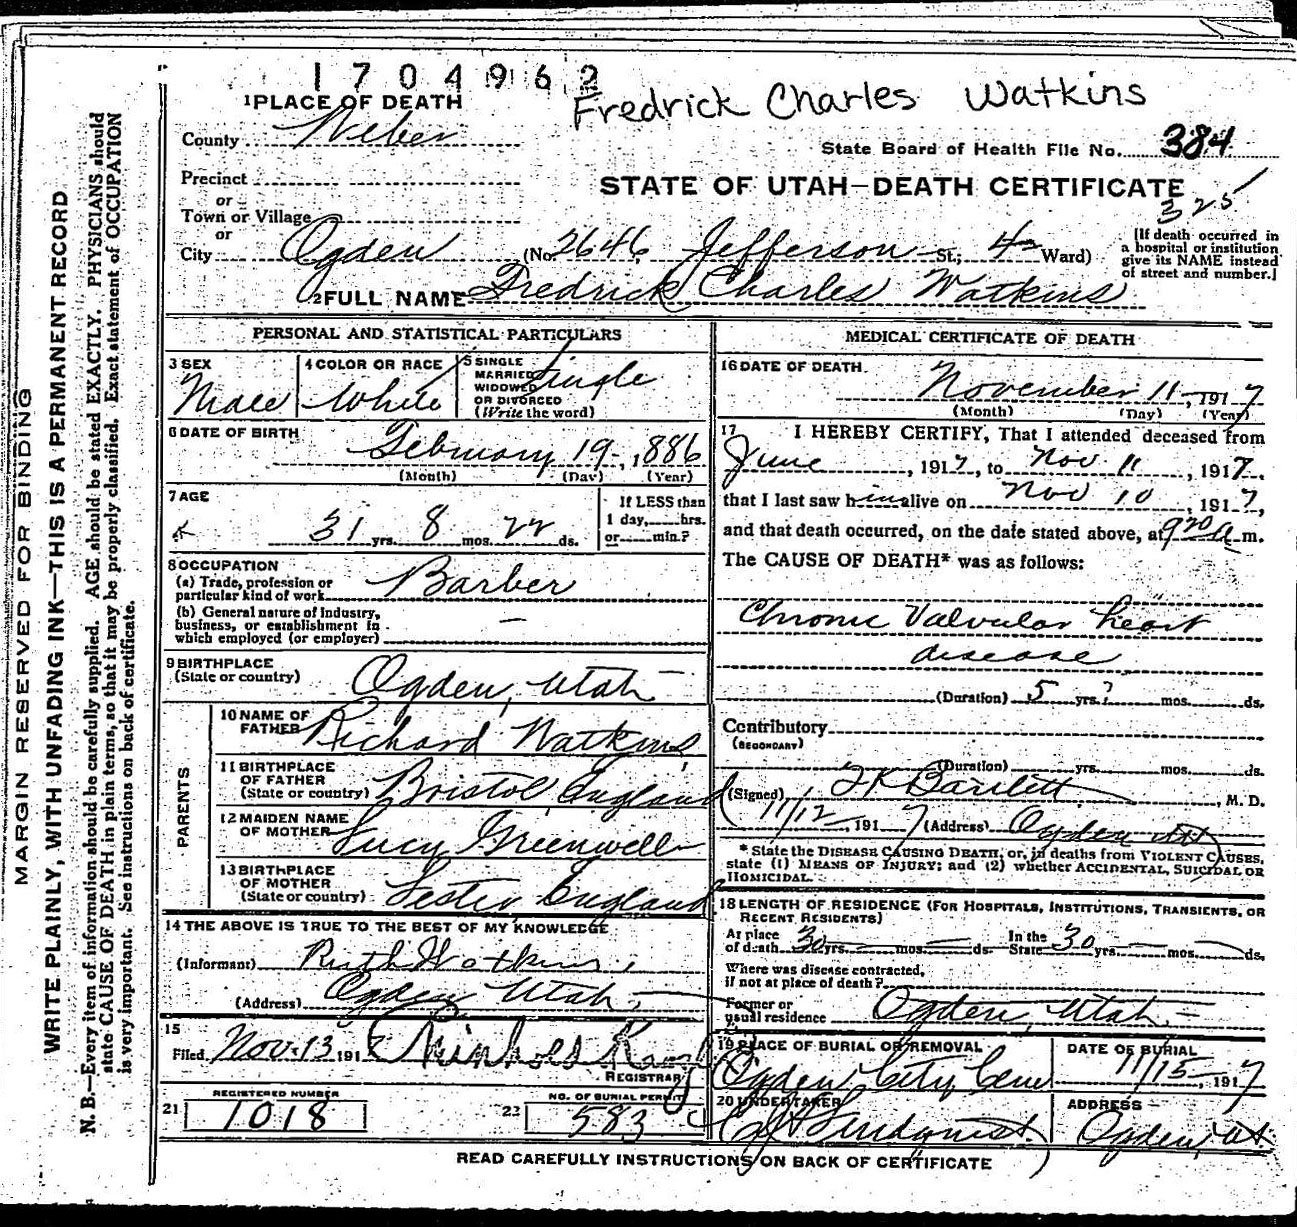 1704962
Fredrick Charles Watkins
1 PLACE OF DEATH
County Weber
State Board of Health File No. 384
Precinct
STATE OF UTAH—DEATH CERTIFICATE
325
or
Town or Village
or
City Ogden (No. 2646 Jefferson St; 4 Ward)
[If death occurred in
a hospital or institution
give its NAME instead
of street and number.]
2 FULL NAME Fredrick Charles Watkins
PERSONAL AND STATISTICAL PARTICULARS
3 SEX
Male
4 COLOR OR RACE
White
5 SINGLE
MARRIED
WIDOWED
OR DIVORCED
(Write the word)
Single
6 DATE OF BIRTH
February 19, 1886
(Month) (Day) (Year)
7 AGE
31 yrs. 8 mos. 22 ds.
If LESS than
1 day, hrs.
or min.?
8 OCCUPATION
(a) Trade, profession or
particular kind of work Barber
(b) General nature of Industry,
business, or establishment in
which employed (or employer) —
9 BIRTHPLACE
(State or country) Ogden, Utah
PARENTS
10 NAME OF
FATHER Richard Watkins
11 BIRTHPLACE
OF FATHER
(State or country) Bristol England
12 MAIDEN NAME
OF MOTHER Lucy Greenwell
13 BIRTHPLACE
OF MOTHER
(State or country) Lester England
14 THE ABOVE IS TRUE TO THE BEST OF MY KNOWLEDGE
(Informant) Ruth Watkins
(Address) Ogden Utah
15
Filed Nov. 13, 191
REGISTRAR
21 REGISTERED NUMBER
1018
22 NO. OF BURIAL PERMIT
583
MEDICAL CERTIFICATE OF DEATH
16 DATE OF DEATH
November 11, 1917
(Month) (Day) (Year)
17 I HEREBY CERTIFY, That I attended deceased from
June, 1917, to Nov 11, 1917,
that I last saw him alive on Nov 10, 1917,
and that death occurred, on the date stated above, at 9 20 A m.
The CAUSE OF DEATH* was as follows:
Chronic Valvular heart
disease
(Duration) 5 yrs.? mos. ds.
Contributory
(SECONDARY)
(Duration) yrs. mos. ds.
(Signed) Bartlett, M. D.
11/12, 1917 (Address) Ogden Ut
* State the DISEASE CAUSING DEATH, or, in deaths from VIOLENT CAUSES,
state (1) MEANS OF INJURY; and (2) whether ACCIDENTAL, SUICIDAL OR
HOMICIDAL.
18 LENGTH OF RESIDENCE (FOR HOSPITALS, INSTITUTIONS, TRANSIENTS, OR
RECENT RESIDENTS)
At place
of death 30 yrs. — mos. — ds. In the
State 30 yrs. — mos. — ds.
Where was disease contracted,
if not at place of death?
Former or
usual residence Ogden, Utah
19 PLACE OF BURIAL OR REMOVAL
Ogden City Cem
DATE OF BURIAL
11/15, 1917
20 UNDERTAKER
Lindquist
ADDRESS
Ogden, Ut
READ CAREFULLY INSTRUCTIONS ON BACK OF CERTIFICATE
MARGIN RESERVED FOR BINDING
WRITE PLAINLY, WITH UNFADING INK—THIS IS A PERMANENT RECORD
N. B.—Every item of information should be carefully supplied. AGE should be stated EXACTLY. PHYSICIANS should
state CAUSE OF DEATH in plain terms, so that it may be properly classified. Exact statement of OCCUPATION
is very important. See instructions on back of certificate.